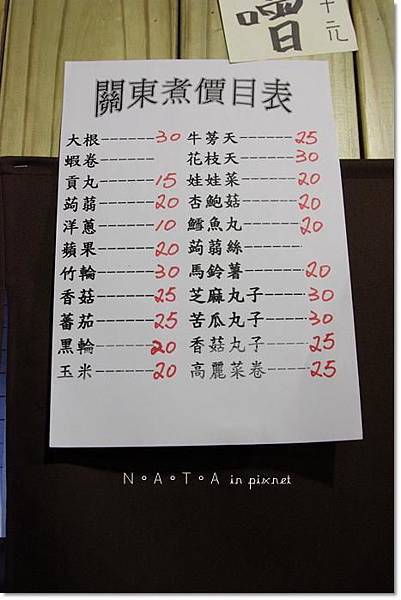 嚐
十元
關東煮價目表
大根------30 牛蒡天------25
蝦卷------ 花枝天------30
貢丸------15 娃娃菜------20
蒟蒻------20 杏鮑菇------20
洋蔥------10 鱈魚丸------20
蘋果------20 蒟蒻絲------
竹輪------30 馬鈴薯------20
香菇------25 芝麻丸子------30
蕃茄------25 苦瓜丸子------30
黑輪------20 香菇丸子------25
玉米------20 高麗菜卷------25
N。A。T。A in pixnet